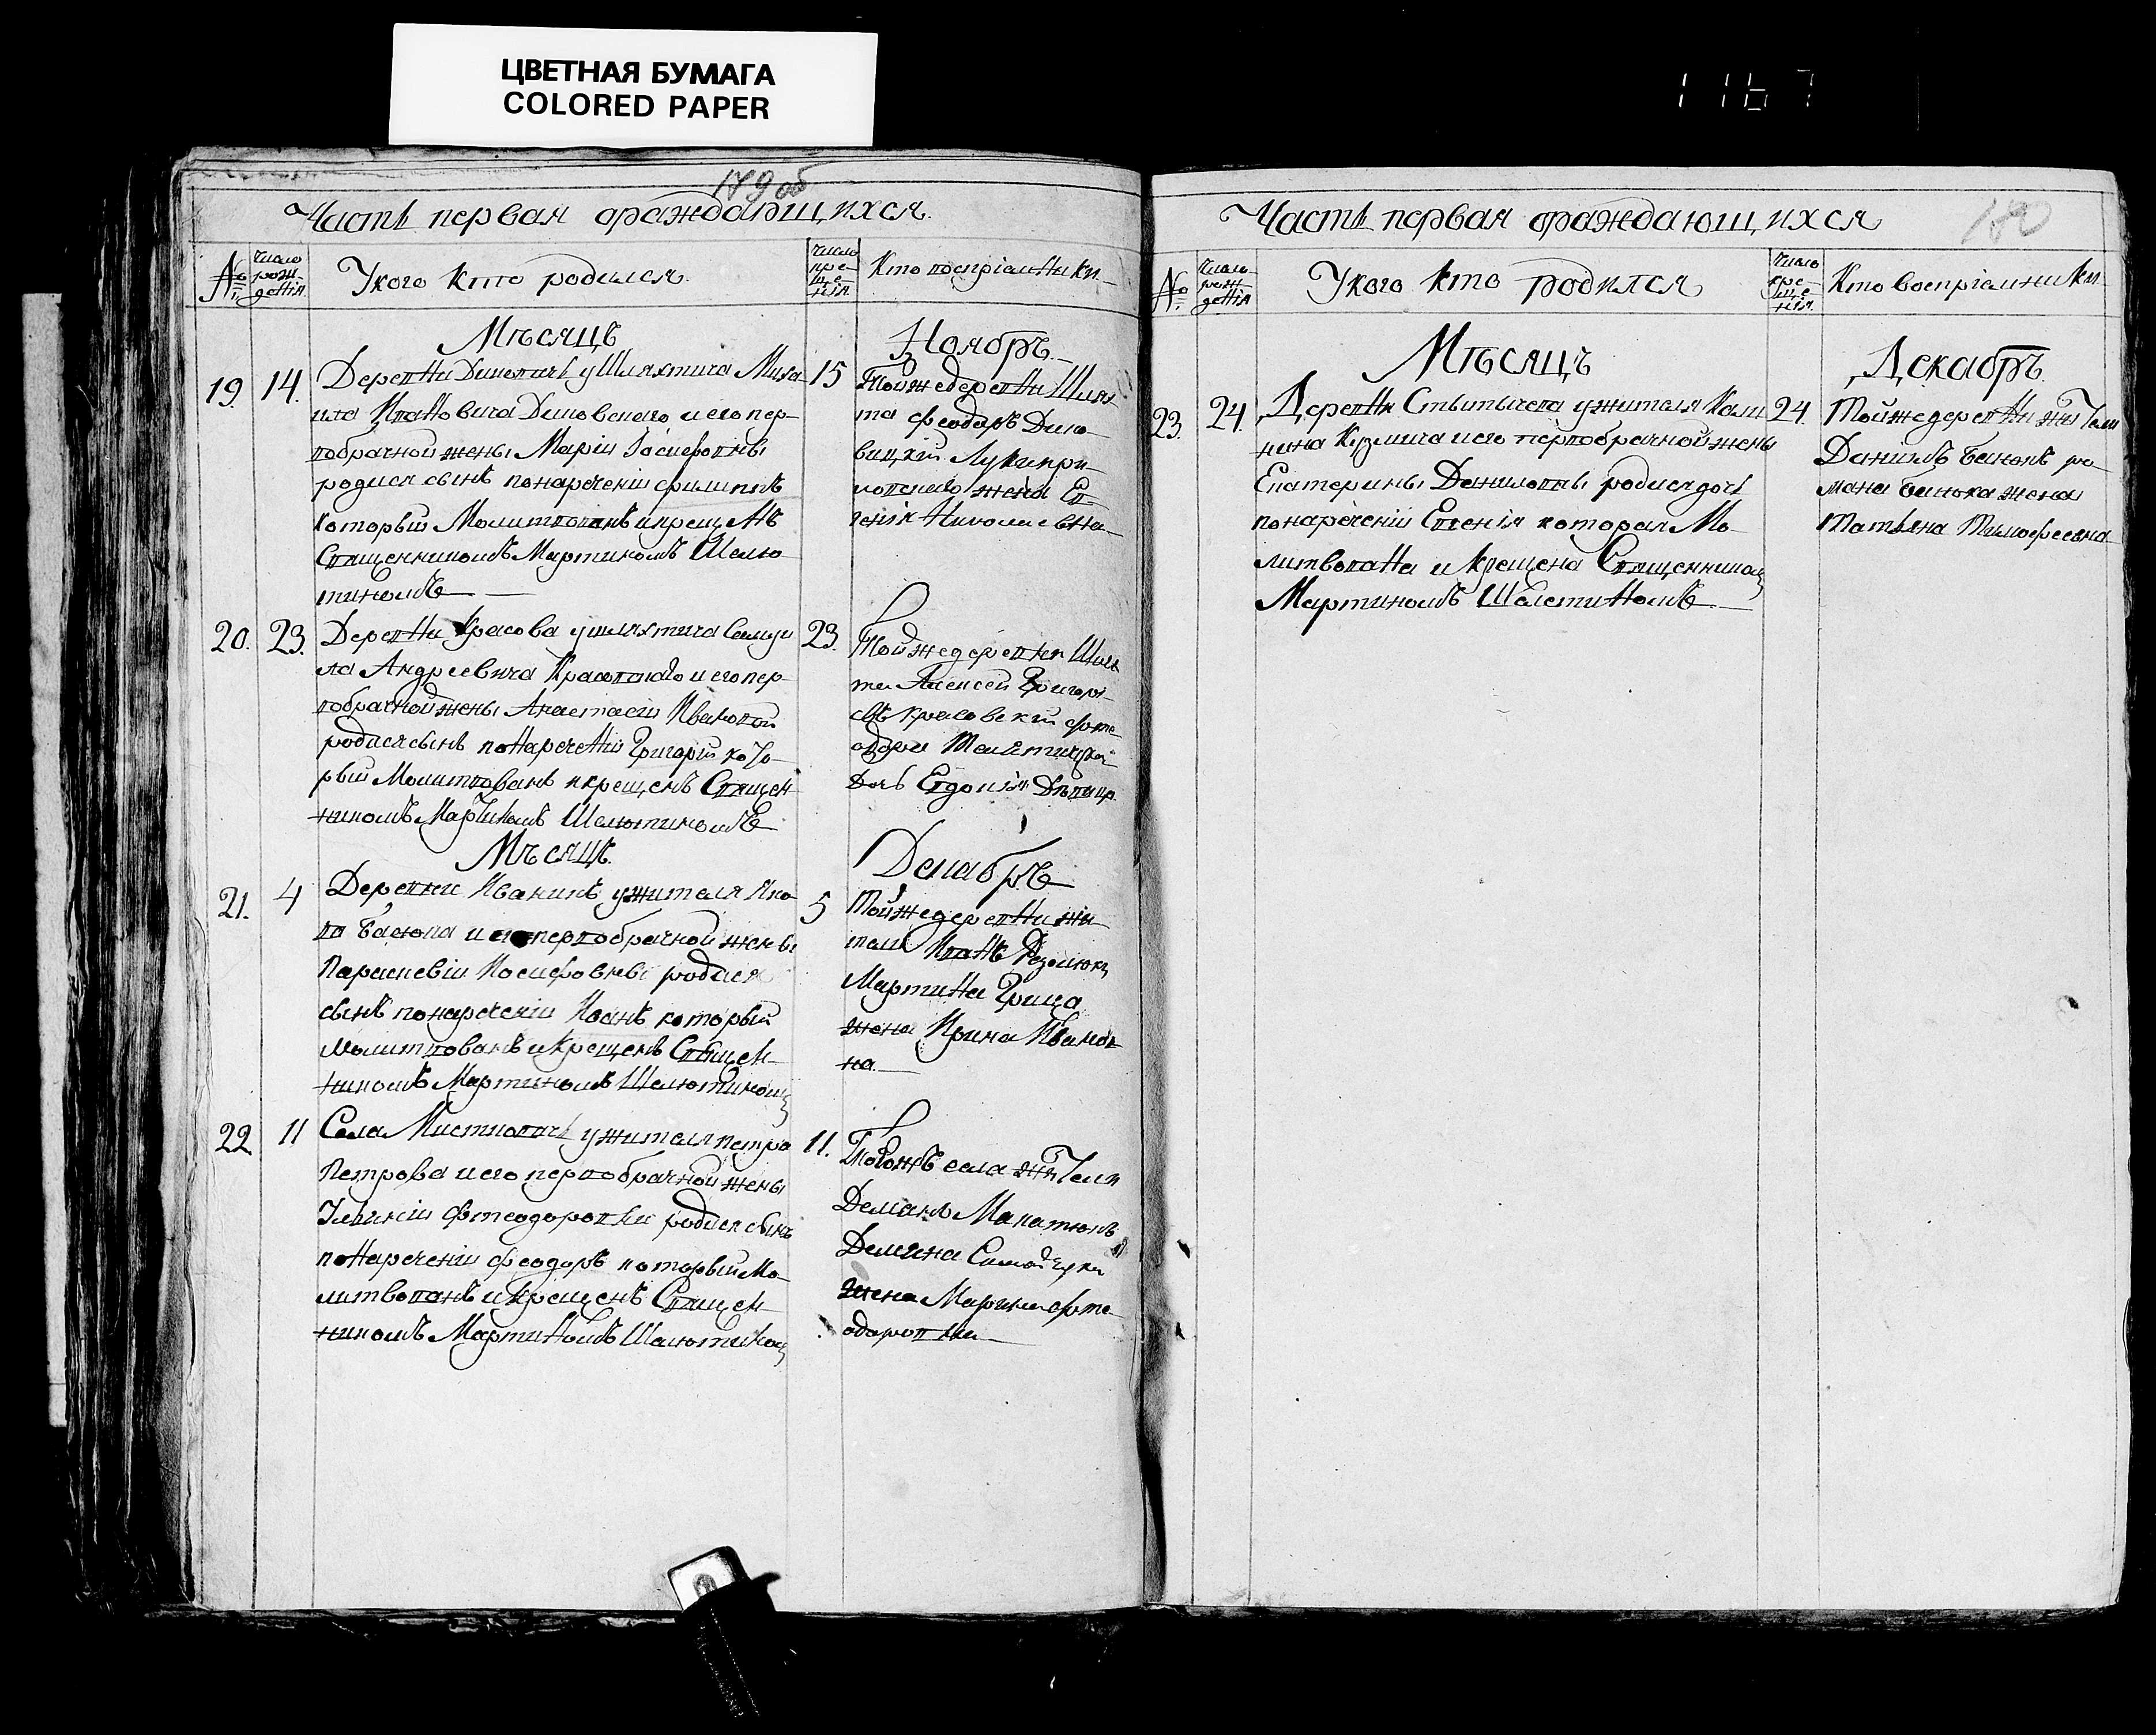 ЦВЕТНАЯ БУМАГА
COLORED PAPER
1167
179 об
Часть первая ораждающихся.
№ Число рождения Укого кто родился. Число крещения Кто воспріемники
Мѣсяцъ Ноябрь
19. 14. 15
Деревни Диновичъ у Шляхтича Миха-
ила Ивановича Диновскаго и его пер-
вобрачной жены Маріи Іосифовны
родися сынъ понареченіи Филиппъ
который Молитвованъ и крещенъ
Священникомъ Мартиномъ Шелю-
тиномъ
Тойже деревни Шлях-
та Феодоръ Дино-
жена Ев-
генія Николаевна
20. 23. 23.
Деревни Красова у шляхтича Самуи
ла Андреевича Красовскаго и его пер-
вобрачной жены Анастасіи Ивановой
родися сынъ понареченіи Григорій кото-
рый Молитвованъ и крещенъ Священ-
никомъ Мартиномъ Шелютиномъ
Тойже деревни Шлях
та Алексей Григорь-
евъ Красовскій Фте-
одора
Дочь Евдокія
Мѣсяцъ Декабрь
21. 4 5
Деревни Иваникъ у жителя Яко-
ва Басюка и его первобрачной жены
Параскевіи Иосифовны родися
сынъ понареченіи Иоанъ который
молитвованъ и крещенъ Священ-
никомъ Мартиномъ Шелютиномъ
Тойже деревни жи-
тели Иванъ
Мартина Грица
жена Ирина Иванов-
на.
22 11 11.
Села Мистковичъ у жителя Петра
Петрова и его первобрачной жены
Фтеодоровны родися сынъ
понареченіи Феодоръ который Мо-
литвованъ и крещенъ Священ-
никомъ Мартиномъ Шелютиномъ
Тогожъ села жители
Демьянъ
Демяна
жена Марина Фте-
одоровна
180
Часть первая ораждающихся
№ Число рождения Укого кто родился Число крещения Кто воспріемники
Мѣсяцъ Декабрь
23. 24. 24.
Деревни Стытычева у жителя Кали
нина Кузмича и его первобрачной жены
Екатерины Даниловны родися дочь
понареченіи Евгенія которая Мо-
литвована и крещена Священникомъ
Мартиномъ Шелютиномъ
Тойже деревни жители
Данилъ Банокъ ро-
мана Банока жена
Татьяна Тимофеевна